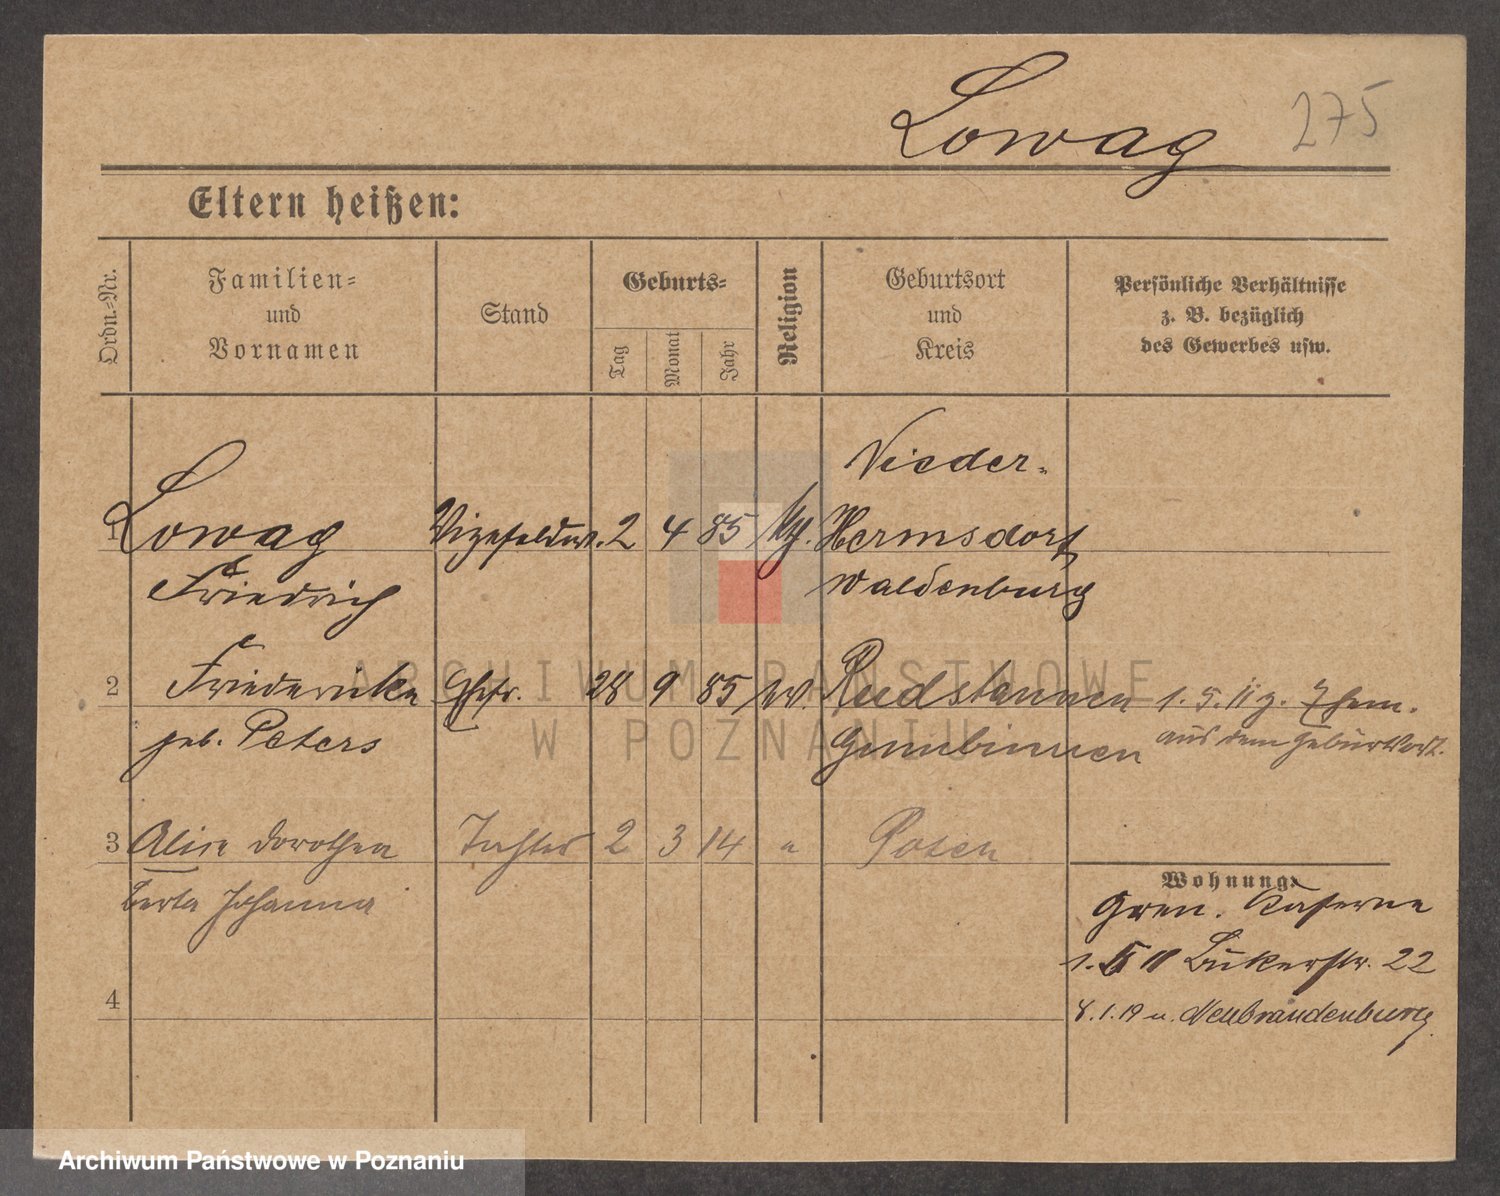 Lowag 275
Eltern heißen:
Ordn.-Nr.
Familien-
und
Vornamen
Stand
Geburts-
Tag
Monat
Jahr
Religion
Geburtsort
und
Kreis
Persönliche Verhältnisse
z. B. bezüglich
des Gewerbes usw.
Nieder-
1 Lowag Vizefeldw. 2 4 85 Hermsdorf
Friedrich Waldenburg
2 Friederike Ehefr. 28 9 85 Rudstannen 1. 5. 11 z.
geb. Peters Gumbinnen aus dem Geburtsort.
3 Alice Dorothea Tochter 2 3 14 " Posen
Berta Johanna
Wohnung:
Gren. Kaserne
1. 5 11 Bukerstr. 22
4 8.1.19 n. Neubrandenburg
ARCHIWUM PAŃSTWOWE
W POZNANIU
Archiwum Państwowe w Poznaniu